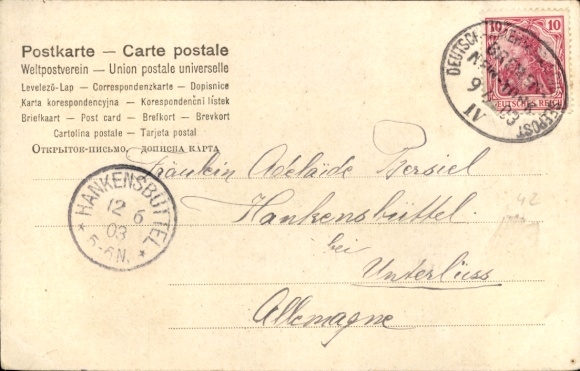 Postkarte — Carte postale
Weltpostverein — Union postale universelle
Levelező-Lap — Correspondenzkarte — Dopisnice
Karta korespondencyjna — Korespondenční lístek
Briefkaart — Post card — Brefkort — Brevkort
Cartolina postale — Tarjeta postal
Открытое-письмо, дописна карта
10 10
DEUTSCHES REICH
HANKENSBÜTTEL
12 6
03
5-6N.
Fräulein Adelaïde Bersiel
Hankensbüttel
bei
Unterlüss
Allemagne
42